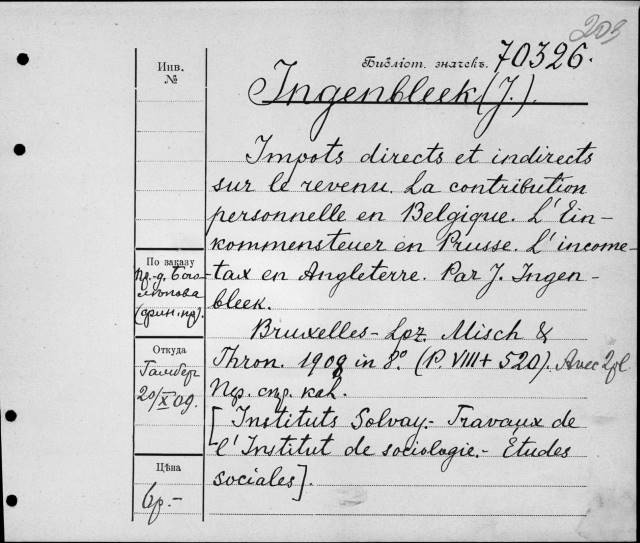 203
Инв. №
Библіот. значекъ. 70326.
Ingenbleek (J.).
Impots directs et indirects
sur le revenu. La contribution
personnelle en Belgique. L'Ein-
kommensteuer en Prusse. L'income-
tax en Angleterre. Par J. Ingen-
bleek.
Bruxelles - Lpz. Misch &
Thron. 1908 in 8º. (P. VIII + 520). Avec 2 pl.
[Instituts Solvay. - Travaux de
l'Institut de sociologie. - Études
sociales].
По заказу
пр.-д. Бого-
лѣпова
(фин. пр).
Откуда
Гамбер
20/X 09.
Цѣна
6р.-